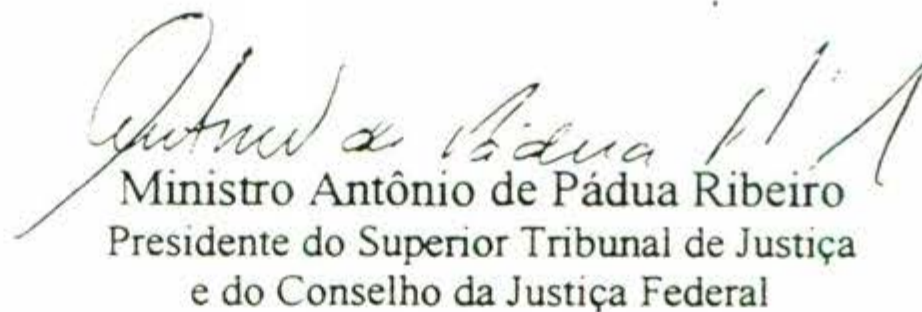 Antônio de Pádua
Ministro Antônio de Pádua Ribeiro
Presidente do Superior Tribunal de Justiça
e do Conselho da Justiça Federal